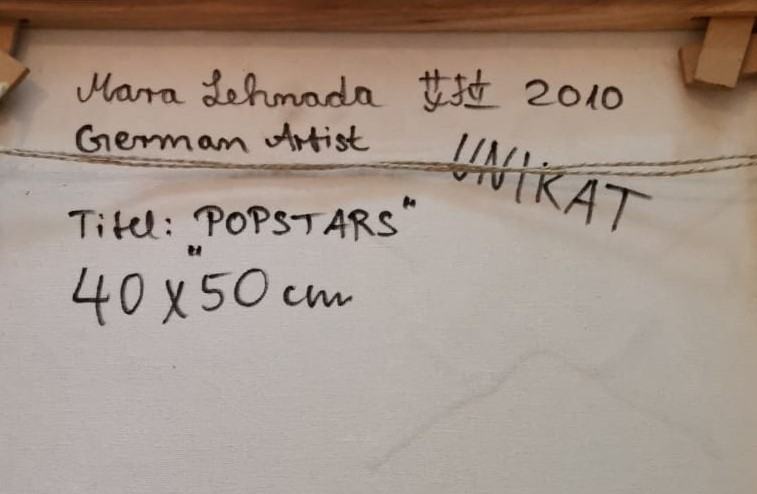 Mara Lehnada 艾拉 2010
German Artist
UNIKAT
Titel: "POPSTARS"
40 x 50 cm